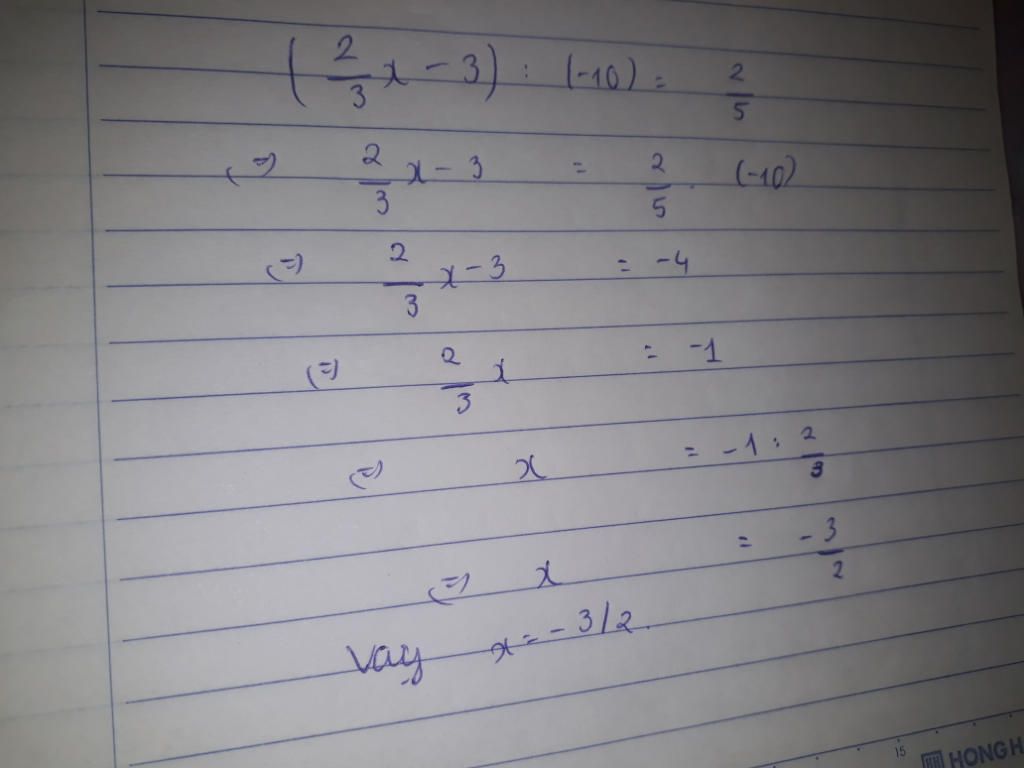 ( 2/3 x - 3 ) : (-10) = 2/5
(=) 2/3 x - 3 = 2/5 . (-10)
(=) 2/3 x - 3 = -4
(=) 2/3 x = -1
(=) x = -1 : 2/3
(=) x = -3/2
Vạy x = -3/2.
15 HONG HA